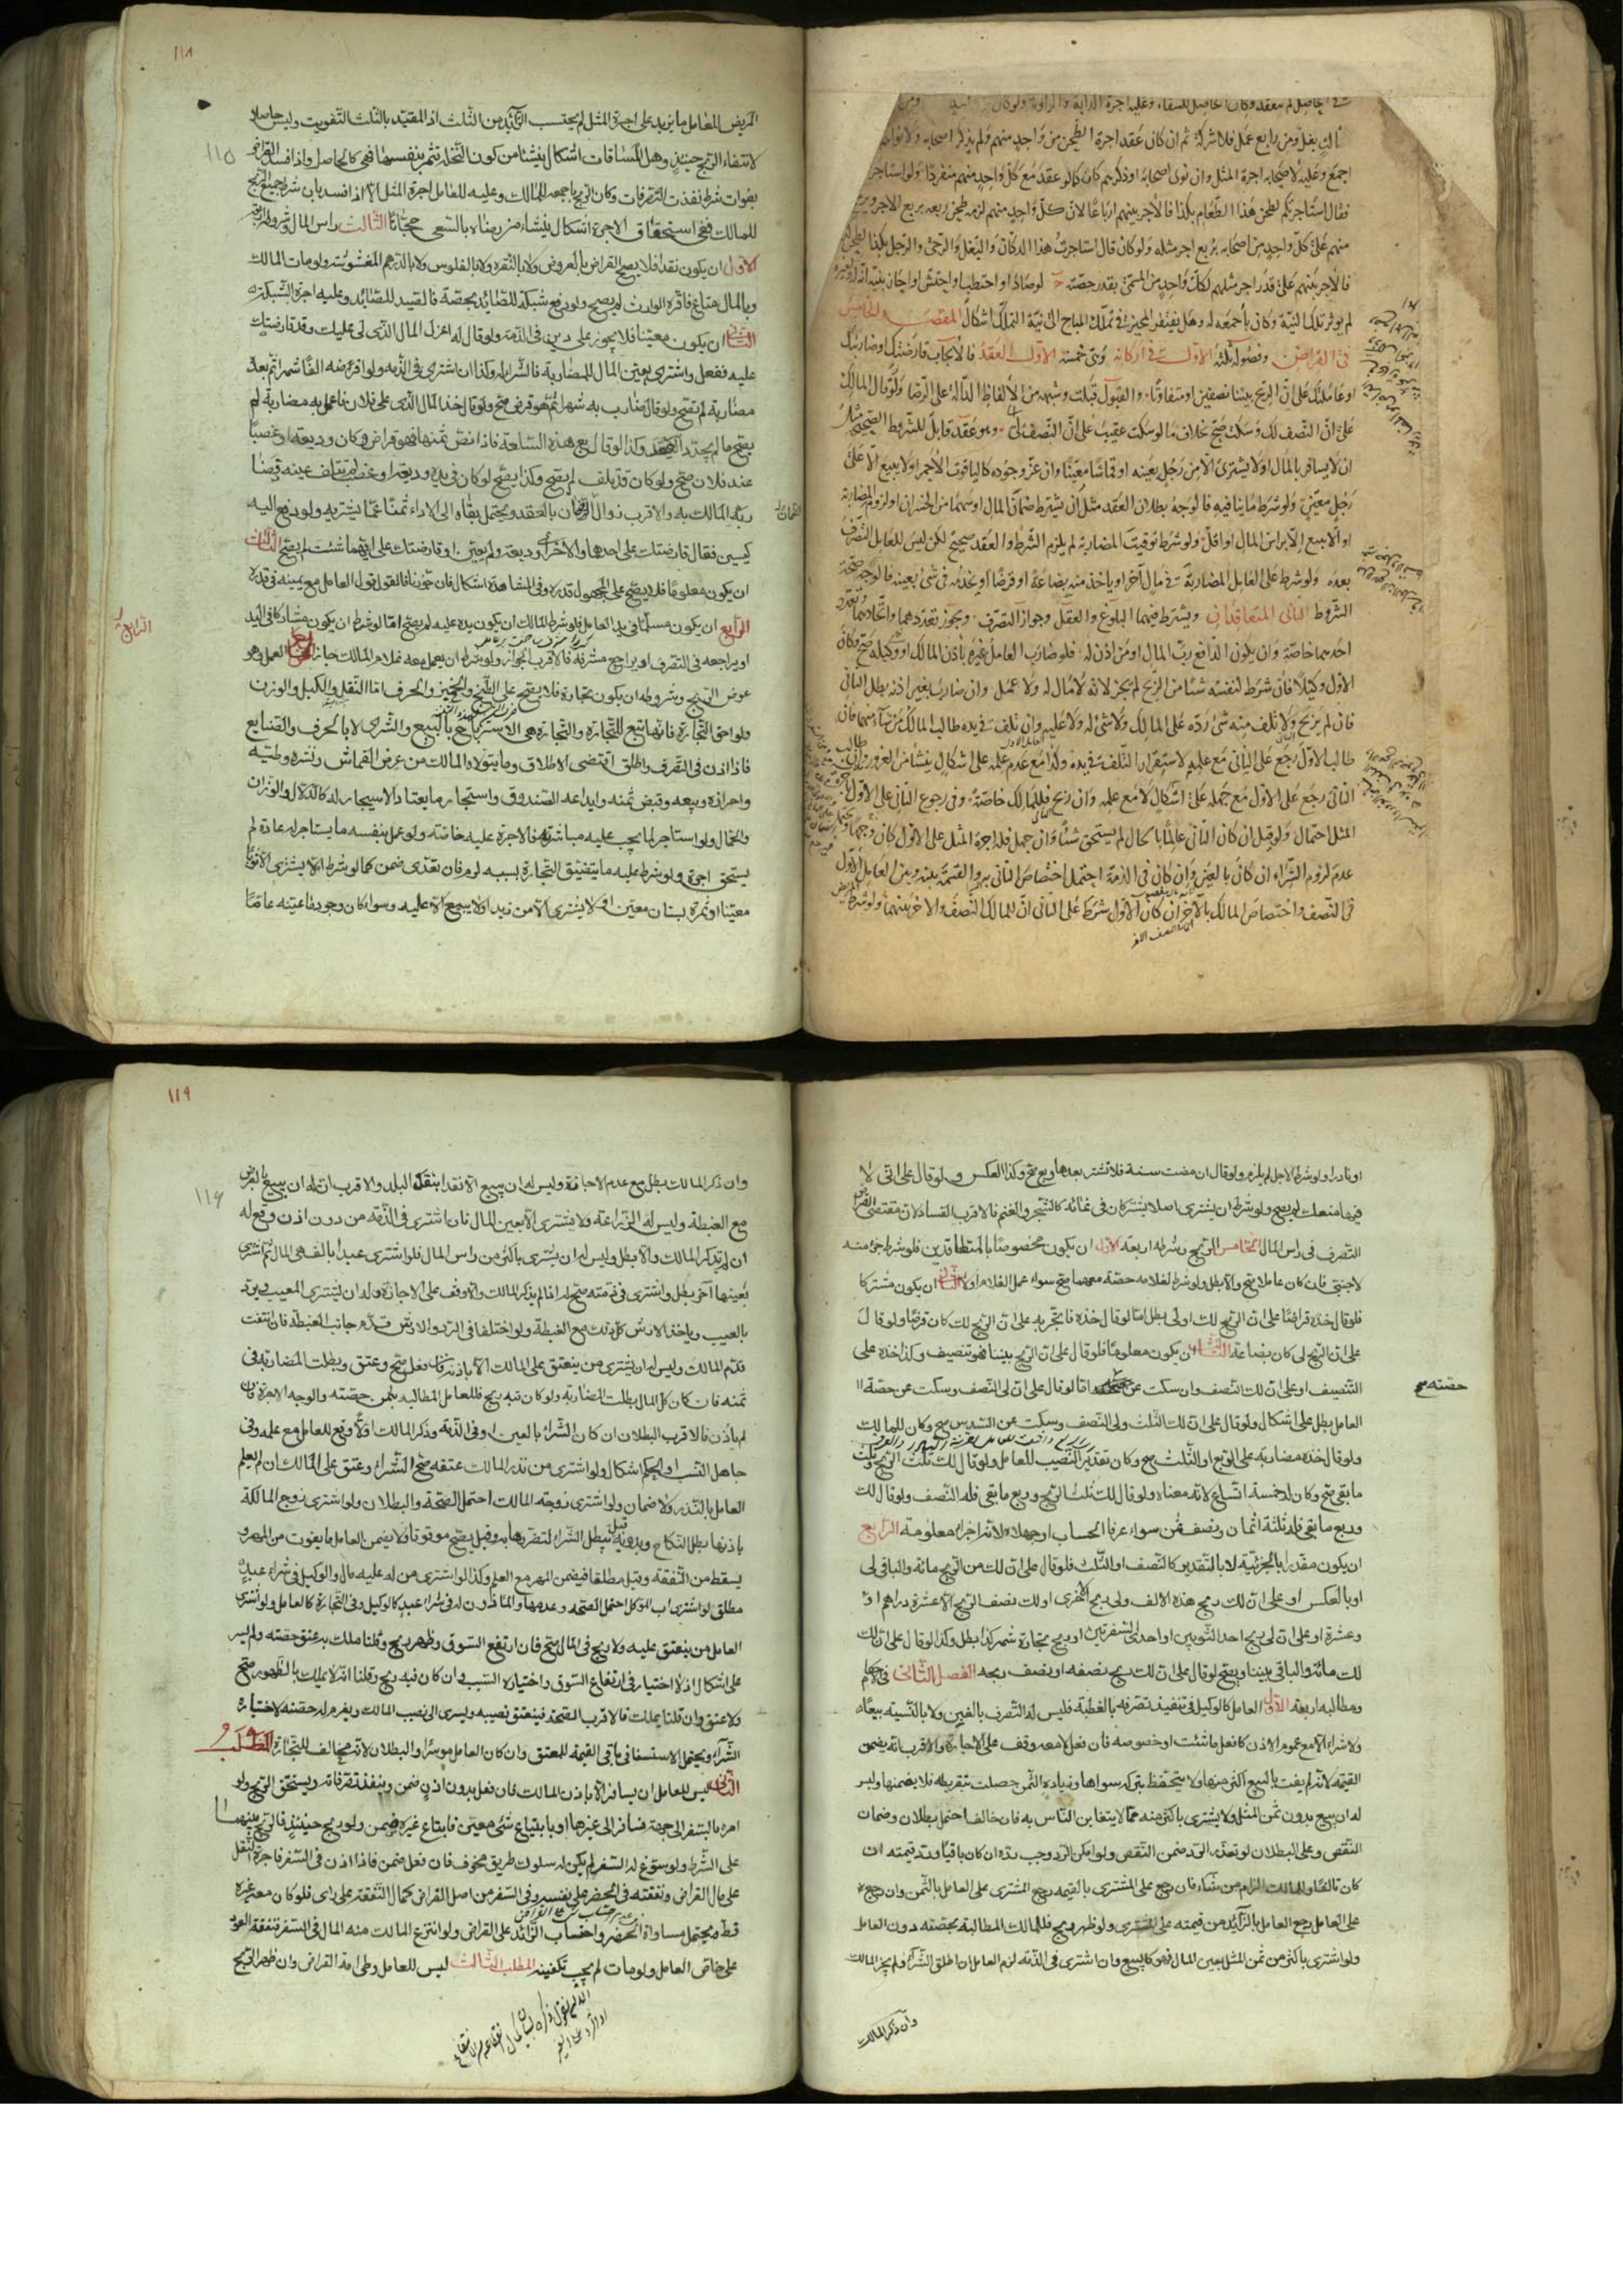 ثالث بغل ومن رابع عمل فلا شركة ثم ان كان عقد اجرة الطحن من واحد منهم ولم يذكر اصحابه ولا نواهم
اجمع وعليه لاصحابه اجرة المثل وان نوى اصحابه او ذكرهم كان كما لو عقد مع كل واحد منهم منفردا ولو استاجر
فقال استاجرتكم لطحن هذا الطعام بكذا فالاجر بينهم ارباعا لان كل واحد منهم لزمه طحن ربعه بربع الاجر ويرجع
منهم على كل واحد من اصحابه بربع اجر مثله ولو كان قال استاجرت هذا الدكان والبغل والرحى والرجل بكذا لطحن
فالاجر بينهم على قدر اجر مثلهم لكل واحد من المسمى بقدر حصته ح لو صاد او احتطب او احتش او حاز بنية انه له ولغيره
لم يوثر تلك النية وكان باجمعه له وهل يفتقر المحيز في تملك المباح الى نية التملك اشكال المقصد الخامس
في القراض وفصوله ثلثة الاول في اركانه وهي خمسة الاول العقد فالايجاب قارضتك او ضاربتك
او عاملتك على ان الربح بيننا نصفين او متفاوتا والقبول قبلت وشبهه من الالفاظ الدالة على الرضا ولو قال المالك
على ان النصف لك وسكت صح بخلاف ما لو سكت عقيب على ان النصف لي وهو عقد قابل للشروط الصحيحة مثل
ان لا يسافر بالمال او لا يشترى الا من رجل بعينه او قماشا معينا وان عز وجوده كالياقوت الاحمر او لا يبيع الا على
رجل معين ولو شرط ما ينافيه فالوجه بطلان العقد مثل ان يشترط ضمان المال او سهما من الخسران او لزوم المضاربة
او الا يبيع الا براس المال او اقل ولو شرط توقيت المضاربة لم يلزم الشرط والعقد صحيح لكن ليس للعامل التصرف
بعده ولو شرط على العامل المضاربة في مال آخر او ياخذ منه بضاعة او قرضا او يخدمه في شئ بعينه فالوجه صحة
الشروط الثاني المتعاقدان ويشترط فيهما البلوغ والعقل وجواز التصرف ويجوز تعددهما واتحادهما وتعدد
احدهما خاصة وان يكون الدافع رب المال او من اذن له فلو ضارب العامل غيره باذن المالك او وكيله صح وكان
الاول وكيلا فان شرط لنفسه شيئا من الربح لم يجز لانه لا مال له ولا عمل وان ضارب بغير اذنه بطل الثاني
فان لم يربح ولا تلف منه شئ رده على المالك ولا شئ له ولا عليه وان تلف في يده طالب المالك من شاء منهما فان
طالب الاول رجع على الثاني مع علمه لاستقرار التلف في يده وكذا مع عدم علمه على اشكال ينشأ من الغرور وان طالب
الثاني رجع على الاول مع جهله على اشكال لا مع علمه وان ربح فللمالك خاصة وفي رجوع الثاني على الاول باجرة
المثل احتمال ولو قيل ان كان الثاني عالما بالحال لم يستحق شيئا وان جهل فله اجرة المثل على الاول كان وجها ويحتمل
عدم لزوم الشراء ان كان بالعين وان كان في الذمة احتمل اختصاص الثاني به والقسمة بينه وبين العامل الاول
في النصف واختصاص المالك بالاخر ان كان الاول شرط على الثاني ان للمالك النصف والاخر بينهما ولو شرط المريض
١١٨
١١٥
المريض للعامل ما يزيد على اجرة المثل لم يحتسب الزائد من الثلث اذ المقيد بالثلث التفويت وليس حاصلا
لانتفاء الربح حينئذ وهل المساقات اشكال ينشأ من كون النخل تثمر بنفسها فهي كالحاصل واذا فسد القراض
بفوات شرط نفذت التصرفات وكان الربح باجمعه للمالك وعليه للعامل اجرة المثل الا اذا فسد بان شرط جميع الربح
للمالك ففي استحقاق الاجرة اشكال ينشاء من رضاه بالسعى مجانا الثالث راس المال وشروطه اربعة
الاول ان يكون نقدا فلا يصح القراض بالعروض ولا بالنقرة ولا بالفلوس ولا بالدراهم المغشوشة ولو مات المالك
وبالمال متاع فاقره الوارث لم يصح ولو دفع شبكة للصائد بحصة فالصيد للصائد وعليه اجرة الشبكة
الثاني ان يكون معينا فلا يجوز على دين في الذمة ولو قال له اعزل المال الذي لي عليك وقد قارضتك
عليه ففعل واشترى بعين المال للمضاربة فالشراء له وكذا ان اشترى في الذمة ولو اقرضه الفا شهرا ثم بعده
مضاربة لم تصح ولو قال ضارب به شهرا ثم هو قرض صح ولو قال خذ المال الذي على فلان فاعمل به مضاربة لم
يصح ما لم يجدد العقد وكذا لو قال بع هذه السلعة فاذا نض ثمنها فهو قراض ولو كان وديعة او غصبا
عند فلان صح ولو كان قد تلف لم يصح وكذا يصح لو كان في يده وديعة او غصب لم يتلف عينه قبضا
ربه المالك به والاقرب زوال الضمان بالعقد ويحتمل بقاه الى الاداء ثمنا عما يشتريه ولو دفع اليه
كيسين فقال قارضتك على احدهما والآخر وديعة ولم يعين او قارضتك على ايهما شئت لم يصح الثالث
ان يكون معلوما فلا يصح على المجهول قدره وفي المشاهدة اشكال فان جوزناه فالقول قول العامل مع يمينه في قدره
الرابع ان يكون مسلما في يد العامل فلو شرط المالك ان يكون يده عليه لم يصح اما لو شرط ان يكون مشاركا في اليد
الرابع
او يراجعه في التصرف او يراجع مشرفه فالاقرب الجواز ولو شرط ان يعمل معه غلام المالك جاز العمل وهو
عوض الربح وشروطه ان يكون تجارة فلا يصح على الطبخ والخبز والحرف اما النقل والكيل والوزن
ولواحق التجارة فانها تتبع للتجارة والتجارة هي الاسترباح بالبيع والشرى لا بالحرف والصنايع
فاذا اذن في التصرف واطلق اقتضى الاطلاق وما يتولاه المالك من عرض القماش ونشره وطيه
واحرازه وبيعه وقبض ثمنه وايداعه الصندوق واستيجار ما يعتاد الاستيجار له كالدلال والوزان
والحمال ولو استاجر لما يجب عليه مباشرته فالاجرة عليه خاصة ولو عمل بنفسه ما يستاجر له عادة لم
يستحق اجرة ولو شرط عليه ما يتضيق التجارة بسببه لزم فان تعدى ضمن كما لو شرط الا يشترى الا ثوبا
معينا او ثمرة بستان معين او لا يشترى الا من زيد او لا يبيع الا عليه وسواء كان وجود ما عينه عاما
او نادرا ولو شرط الاجل لم يلزم ولو قال ان مضت سنة فلا تشتر بعدها وبع صح وكذا العكس ولو قال على اني لا
فيها منعتك لم يصح ولو شرط ان يشترى اصلا يشتركان في نمائه كالشجر والغنم فالاقرب الفساد لان مقتضى القراض
التصرف في راس المال الخامس الربح وشروطه اربعة الاول ان يكون مخصوصا بالمتعاقدين فلو شرط جزء منه
لاجنبي فان كان عاملا صح والا بطل ولو شرط لغلامه حصة معهما صح سواء عمل الغلام اولا الثاني ان يكون مشتركا
فلو قال خذه قراضا على ان الربح لك او لي بطل اما لو قال خذه فاتجر به على ان الربح لك كان قرضا ولو قال
على ان الربح لي كان بضاعة الثالث ان يكون معلوما فلو قال على ان الربح بيننا فهو تنصيف وكذا خذه على
التنصيف او على ان لك النصف وان سكت عن حصته اما لو قال على ان لي النصف وسكت عن حصة
حصته صح
العامل بطل على اشكال ولو قال على ان لك الثلث ولي النصف وسكت عن السدس صح وكان للمالك
ولو قال خذه مضاربة على الربع او الثلث صح وكان تقدير النصيب للعامل ولو قال لك ثلث الربح وثلث
ما بقي صح وكان له خمسة اتساع لانه معناه ولو قال لك ثلث الربح وربع ما بقي فله النصف ولو قال لك
وربع ما بقي فله ثلثة اثمان ونصف ثمن سواء عرفا الحساب او جهلاه لانه اجزاء معلومة الرابع
ان يكون مقدرا بالجزئية لا بالتقدير كالنصف او الثلث فلو قال على ان لك من الربح مائة والباقي لي
او بالعكس او على ان لك ربح هذه الالف ولي ربح الاخرى او لك نصف الربح الا عشرة دراهم او
وعشرة او على ان لي ربح احد الثوبين او احدى السفرتين او ربح تجارة شهر كذا بطل وكذا لو قال على ان لك
لك مائة والباقي بيننا ويصح لو قال على ان لك ربح نصفه او نصف ربحه الفصل الثاني في الاحكام
ومطالبه اربعة الاول العامل كالوكيل في تنفيذ تصرفه بالغبطة فليس له التصرف بالغبن ولا بالنسية بيعا
ولا شراء الا مع عموم الاذن كافعل ما شئت او خصوصه فان فعل لا معه وقف على الاجازة والاقرب انه يضمن
القيمة لانه لم يفت بالبيع اكثر منها ولا يتحفظ بتركه سواها وزيادة الثمن حصلت بتفريطه فلا يضمنها وليس
له ان يبيع بدون ثمن المثل ولا يشترى باكثر منه مما لا يتغابن الناس به فان خالف احتمل بطلان وضمان
النقص وعلى البطلان لو تعذر الرد ضمن النقص ولو امكن الرد وجب رده ان كان باقيا ورد قيمته ان
كان تالفا وللمالك الزام من شاء فان رجع على المشترى بالقيمة رجع المشترى على العامل بالثمن وان رجع
على العامل رجع العامل بالزائد من قيمته على المشترى ولو ظهر ربح فللمالك المطالبة بحصته دون العامل
ولو اشترى باكثر من ثمن المثل بعين المال فهو كالبيع وان اشترى في الذمة لزم العامل ان اطلق الشراء ولم يجز المالك
وان ذكر المالك
١١٩
١١٦
وان ذكر المالك بطل مع عدم الاجازة وليس له ان يبيع الا نقدا بنقد البلد والاقرب ان له ان يبيع بالعرض
مع الغبطة وليس له الزراعة ولا يشترى الا بعين المال فان اشترى في الذمة من دون اذن وقع له
ان لم يذكر المالك والا بطل وليس له ان يشترى باكثر من راس المال فلو اشترى عبدا بالف هي المال ثم اشترى
بعينها آخر بطل واشترى في ذمته صح له اذا لم يذكر المالك والا وقف على الاجازة وله ان يشترى المعيب ويرد
بالعيب وياخذ الارش كل ذلك مع الغبطة ولو اختلفا في الرد والارش قدم جانب الغبطة فان انتفت
قدم المالك وليس له ان يشترى من ينعتق على المالك الا باذنه فان فعل صح وعتق وبطلت المضاربة في
ثمنه فان كان كل المال بطلت المضاربة ولو كان فيه ربح فللعامل المطالبة بثمن حصته والوجه الاجرة وان
لم ياذن فالاقرب البطلان ان كان الشراء بالعين او في الذمة وذكر المالك والا وقع للعامل مع علمه وفي
جاهل النسب او الحكم اشكال ولو اشترى من نذر المالك عتقه صح الشراء وعتق على المالك ان لم يعلم
العامل بالنذر ولا ضمان ولو اشترى زوجة المالك احتمل الصحة والبطلان ولو اشترى زوج المالكة
باذنها بطل النكاح وبدونه قيل يبطل الشراء لتضررها به وقيل يصح موقوفا فلا يضمن العامل ما يفوت من المهر و
يسقط من النفقة وقيل مطلقا فيضمن المهر مع العلم وكذا لو اشترى من له عليه مال والوكيل في شراء عبد
مطلق لو اشترى اب الموكل احتمل الصحة وعدمها والماذون له في شراء عبد كالوكيل وفي التجارة كالعامل ولو اشترى
العامل من ينعتق عليه ولا ربح في المال صح فان ارتفع السوق وظهر ربح وقلنا ملك به عتق حصته ولم يسر
على اشكال اذ لا اختيار في ارتفاع السوق واختياره السبب وان كان فيه ربح وقلنا انه لا يملك بالظهور صح
ولا عتق وان قلنا يملك فالاقرب الصحة فينعتق نصيبه ويسرى الى نصيب المالك ويغرم له حصته لاختياره
الشراء ويحتمل الاستسعا في باقي القيمة للمعتق وان كان العامل موسرا والبطلان لانه مخالف للتجارة المطلب
الثاني ليس للعامل ان يسافر الا باذن المالك فان فعل بدون اذن ضمن وينفذ تصرفاته ويستحق الربح ولو
امره بالسفر الى جهة فسافر الى غيرها او بابتياع شئ معين فابتاع غيره ضمن ولو ربح حينئذ فالربح بينهما
على الشرط ولو سوغ له السفر لم يكن له سلوك طريق مخوف فان فعل ضمن فاذا اذن في السفر فاجرة النقل
على مال القراض ونفقته في الحضر على نفسه وفي السفر من اصل القراض كمال النفقة على راى فلو كان معه غيره
قسط ويحتمل مساواة الحضر واحتساب الزائد على القراض ولو انتزع المالك منه المال في السفر فنفقة العود
على خاص العامل ولو مات لم يجب تكفينه المطلب الثالث ليس للعامل وطى امة القراض وان ظهر الربح